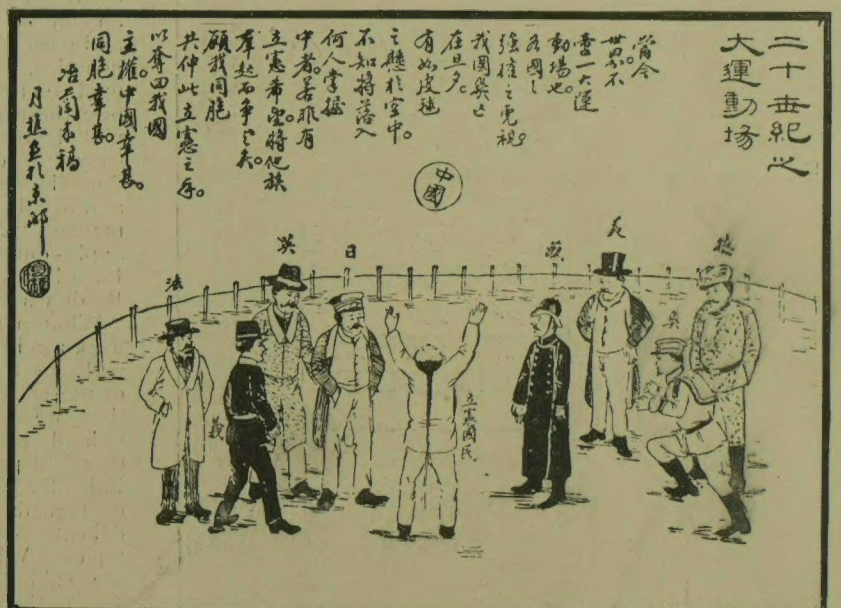 二十世紀之
大運動場
當今
世界不
啻一大運
動場也。
各國之
強權之虎視。
我國興亡
在旦夕。
有如皮毬
之懸於空中。
不知將落入
何人掌握
中者。若非有
立憲希望。將他族
羣起而爭之矣。
願我同胞
共伸此立憲之手。
以奪回我國
主權。中國幸甚。
同胞幸甚。
冶蘭 稿
月樵畫於京邸
中國
德
奧
美
俄
日
英
法
義
立憲國民